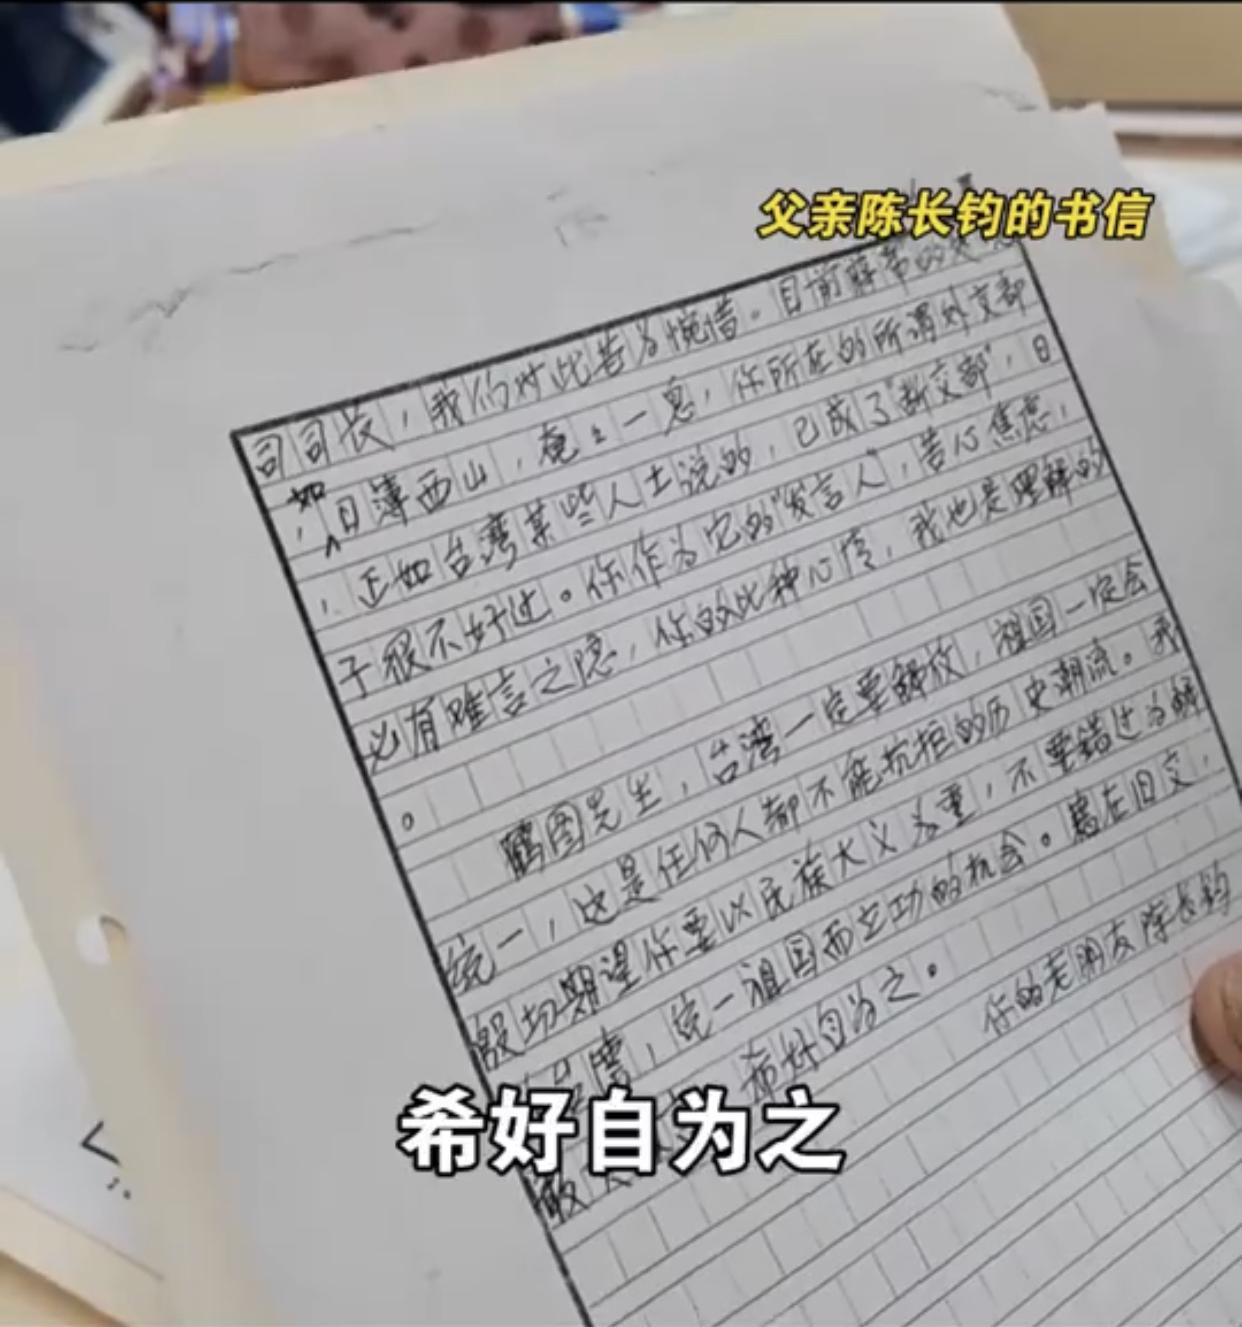 父亲陈长钧的书信
司司长，我们对此甚为惋惜。目前蒋帮的
如日薄西山，奄々一息，你所在的所谓外交部
，正如台湾某些人士说的，已成了“断交部”，日
子很不好过。你作为它的“发言人”，苦心焦虑，
必有难言之隐，你的此种心情，我也是理解的
。
鹤图先生，台湾一定要解放，祖国一定会
统一，这是任何人都不能抗拒的历史潮流。我
殷切期望你要以民族大义为重，不要错过为解
放台湾，统一祖国而立功的机会。忝在旧交，
希好自为之。
你的老朋友陈长钧
希好自为之